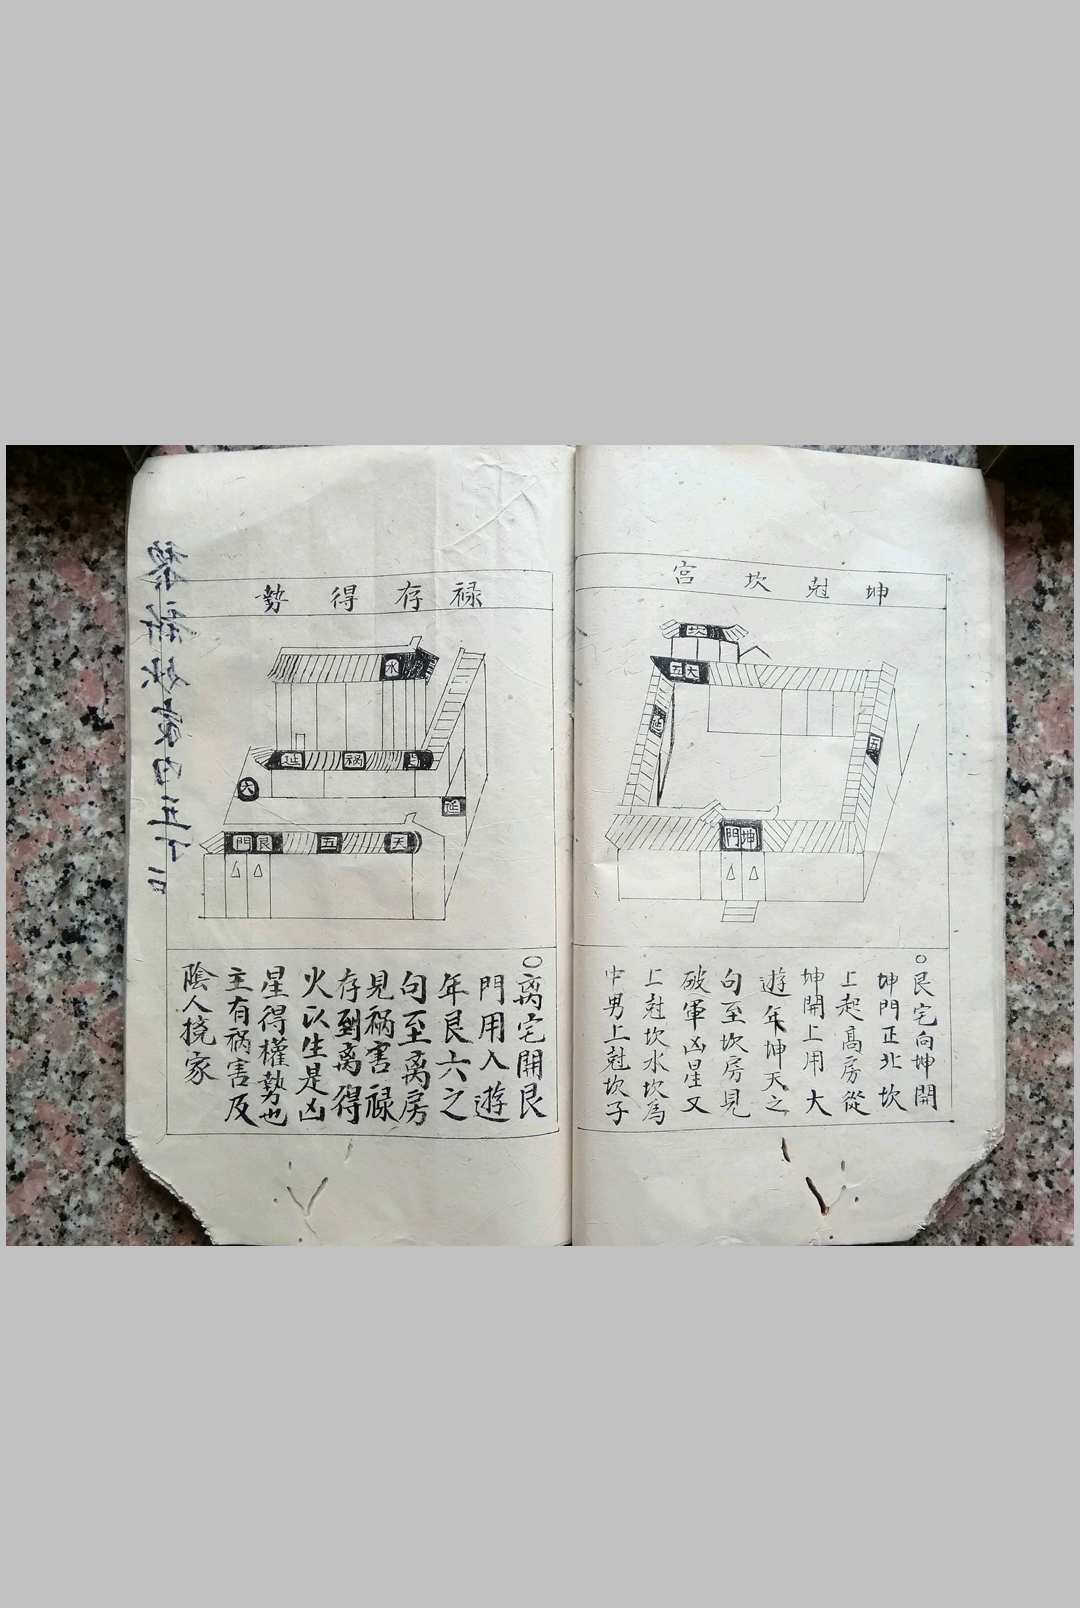 坤尅坎宮
坎
五大
延
五
門坤
○艮宅向坤開
坤門正北坎
上起高房從
坤開上用大
遊年坤天之
句至坎房見
破軍凶星又
上尅坎水坎爲
中男上尅坎子
禄存得勢
水
延
禍
六
延
門艮
五
天
○离宅開艮
門用入遊
年艮六之
句至离房
見禍害禄
存到离得
火以生是凶
星得權勢也
主有禍害及
陰人撓家